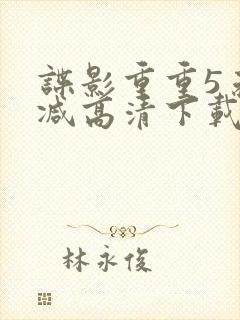 諜影重重5
减高清下載
林永俊